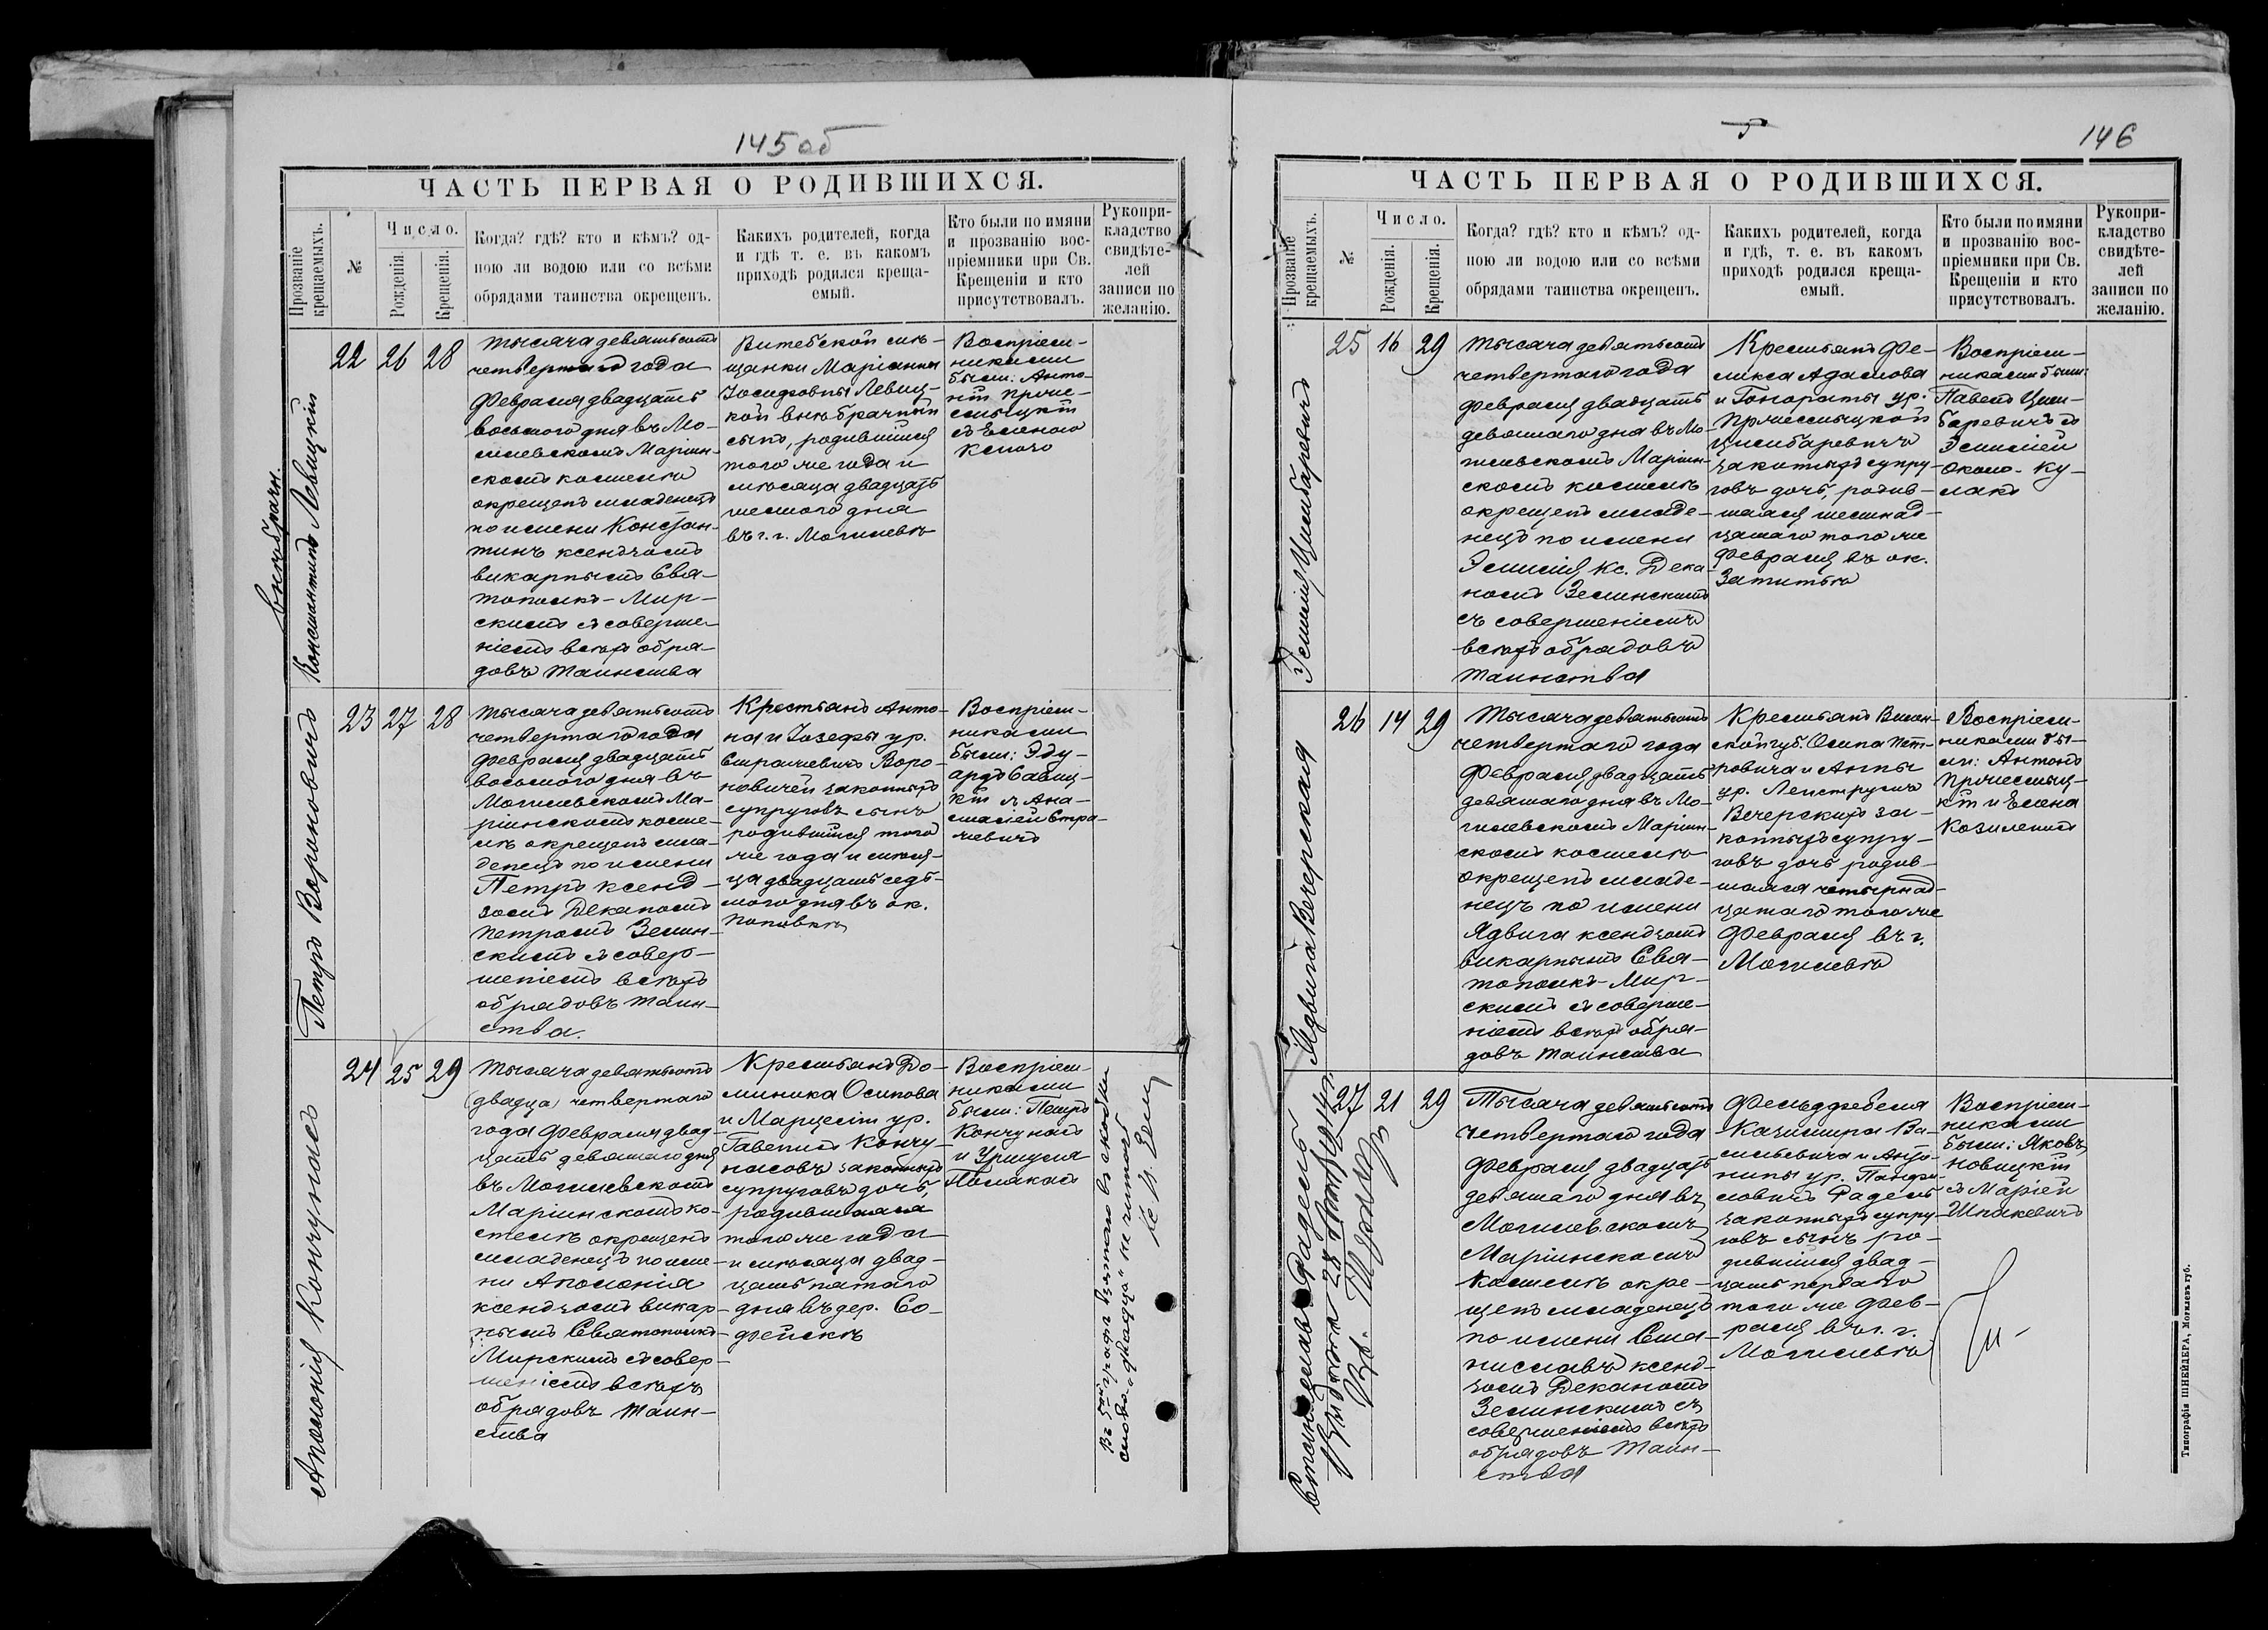 145 об
ЧАСТЬ ПЕРВАЯ О РОДИВШИХСЯ.
Прозваніе крещаемыхъ.
№
Число.
Рожденія.
Крещенія.
Когда? гдѣ? кто и кѣмъ? од-
ною ли водою или со всѣми
обрядами таинства окрещенъ.
Какихъ родителей, когда
и гдѣ т. е. въ какомъ
приходѣ родился креща-
емый.
Кто были по имяни
и прозванію вос-
пріемники при Св.
Крещеніи и кто
присутствовалъ.
Рукопри-
кладство
свидѣте-
лей
записи по
желанію.
внѣбрачн.
Константинъ Левицкій
22 26 28
Тысяча девятьсотъ
четвертаго года
Февраля двадцать
восьмого дня въ Мо-
гилевскомъ Маріин-
скомъ костелѣ
окрещенъ младенецъ
по имени Констан-
тинъ ксендзомъ
викарнымъ Свя-
тополкъ-Мир-
скимъ съ соверше-
ніемъ всѣхъ обря-
довъ Таинства
Витебской мѣ-
щанки Маріанны
Іосифовны Левиц-
кой внѣбрачный
сынъ, родившійся
того же года и
мѣсяца двадцать
шестого дня
въ г. г. Могилевѣ
Воспріем-
никами
были: Анто-
ній Прже-
смыцкій
съ Еленою
Петръ Вороновичъ
23 27 28
Тысяча девятьсотъ
четвертаго года
Февраля двадцать
восьмого дня въ
Могилевскомъ Ма-
ріинскомъ косте-
лѣ окрещенъ мла-
денецъ по имени
Петръ ксенд-
зомъ Деканомъ
Петромъ Зелин-
скимъ съ совер-
шеніемъ всѣхъ
обрядовъ таин-
ства.
Крестьянъ Анто-
на и Іозефы ур.
Вороновичей законныхъ
супруговъ сынъ
родившійся того
же года и мѣся-
ца двадцать седь-
мого дня въ ок.
Поповкѣ
Воспріем-
никами
были: Эду-
ардъ Савиц-
кій и Ана-
стасіей
Аполонія Кончунасъ
24 25 29
Тысяча девятьсотъ
(двадца) четвертаго
года Февраля двад-
цать девятаго дня
въ Могилевскомъ
Маріинскомъ ко-
стелѣ окрещенъ
младенецъ по име-
ни Аполонія
ксендзомъ викар-
нымъ Святополкъ-
Мирскимъ съ совер-
шеніемъ всѣхъ
обрядовъ Таин-
ства
Крестьянъ До-
миника Осипова
и Марцелiи ур.
Кончу-
насовъ законныхъ
супруговъ дочь,
родившаяся
того же года
и мѣсяца двад-
цать пятаго
дня въ дер. Со-
фейскѣ
Воспріем-
никами
были: Петръ
Кончунасъ
и Уршуля
Полякасъ
Въ 5ой графѣ взятое въ скобки
слово „двадца" не читать
5
146
ЧАСТЬ ПЕРВАЯ О РОДИВШИХСЯ.
Прозваніе крещаемыхъ.
№
Число.
Рожденія.
Крещенія.
Когда? гдѣ? кто и кѣмъ? од-
ною ли водою или со всѣми
обрядами таинства окрещенъ.
Какихъ родителей, когда
и гдѣ, т. е. въ какомъ
приходѣ родился креща-
емый.
Кто были по имяни
и прозванію вос-
пріемники при Св.
Крещеніи и кто
присутствовалъ.
Рукопри-
кладство
свидѣте-
лей
записи по
желанію.
Эмилія Цимбаревичъ
25 16 29
Тысяча девятьсотъ
четвертаго года
Февраля двадцать
девятаго дня въ Мо-
гилевскомъ Маріин-
скомъ костелѣ
окрещенъ младе-
нецъ по имени
Эмилія кс. Дека-
номъ Зелинскимъ
съ совершеніемъ
всѣхъ обрядовъ
Таинства
Крестьянъ Фе-
ликса Адамова
и Гонораты ур.
Пржесмыцкой
Цимбаревичъ
законныхъ супру-
говъ дочь, родив-
шаяся шестнад-
цатаго того же
Февраля въ ок.
Затишьѣ
Воспріем-
никами были:
Павелъ Цим-
баревичъ съ
Эмиліей
Около-Ку-
лакъ
Ядвига Вечерская
26 14 29
Тысяча девятьсотъ
четвертаго года
Февраля двадцать
девятаго дня въ Мо-
гилевскомъ Маріин-
скомъ костелѣ
окрещенъ младе-
нецъ по имени
Ядвига ксендзомъ
викарнымъ Свя-
тополкъ-Мир-
скимъ съ соверше-
ніемъ всѣхъ обря-
довъ Таинства
Крестьянъ Вилен-
ской губ. Осипа Пет-
ровича и Анны
ур.
Вечерскихъ за-
конныхъ супру-
говъ дочь родив-
шаяся четырнад-
цатаго того же
Февраля въ г.
Могилевѣ
Воспріем-
никами бы-
ли: Антонъ
Пржесмыц-
кій и Елена
Станиславъ Фадель
27 21 29
Тысяча девятьсотъ
четвертаго года
Февраля двадцать
девятаго дня въ
Могилевскомъ
Маріинскомъ
Костелѣ окре-
щенъ младенецъ
по имени Ста-
ниславъ ксенд-
зомъ Деканомъ
Зелинскимъ съ
совершеніемъ всѣхъ
обрядовъ Таин-
ства
Фельдфебеля
Казимира Ва-
сильевича и Анто-
нины ур. Панфи-
ловичъ Фадель
законныхъ супру-
говъ сынъ ро-
дившійся двад-
цать перваго
того же Фев-
раля въ г. г.
Могилевѣ
Воспріем-
никами
были: Яковъ
Новицкій
съ Маріей
Шпакевичъ
Типографія ШНЕЙДЕРА, Могилевъ губ.